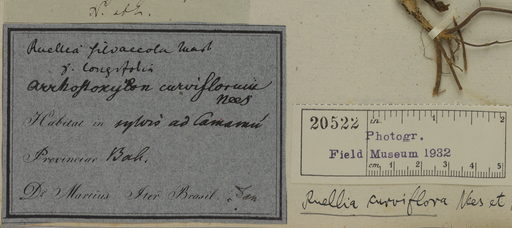 N. et
Ruellia silvaccola Mart
γ. longifolia
Arrhostoxylon curviflorum
Nees
Habitat in sylvis ad Camamú
Provinciae Bah.
Dr. Martius Iter Brasil. Jan
20522
in. 1 2
Photogr.
Field Museum 1932
cm. 1 2 3 4 5
Ruellia curviflora Nees et